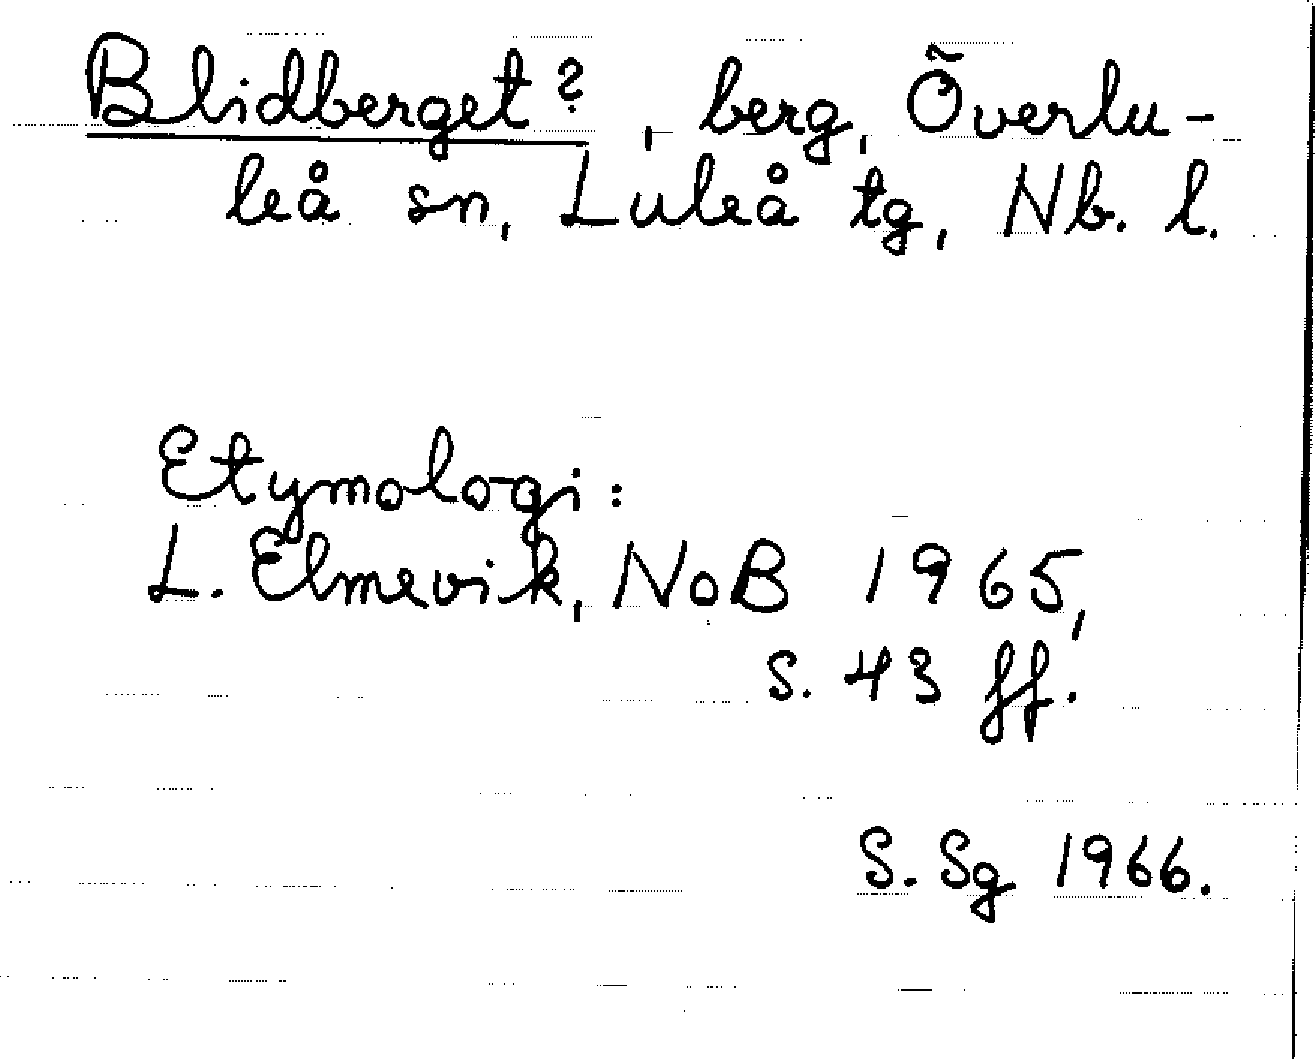 Blidberget?, berg, Överlu-
leå sn, Luleå tg, Nb. l.
Etymologi:
L. Elmevik, NoB 1965,
s. 43 ff.
S. Sg 1966.